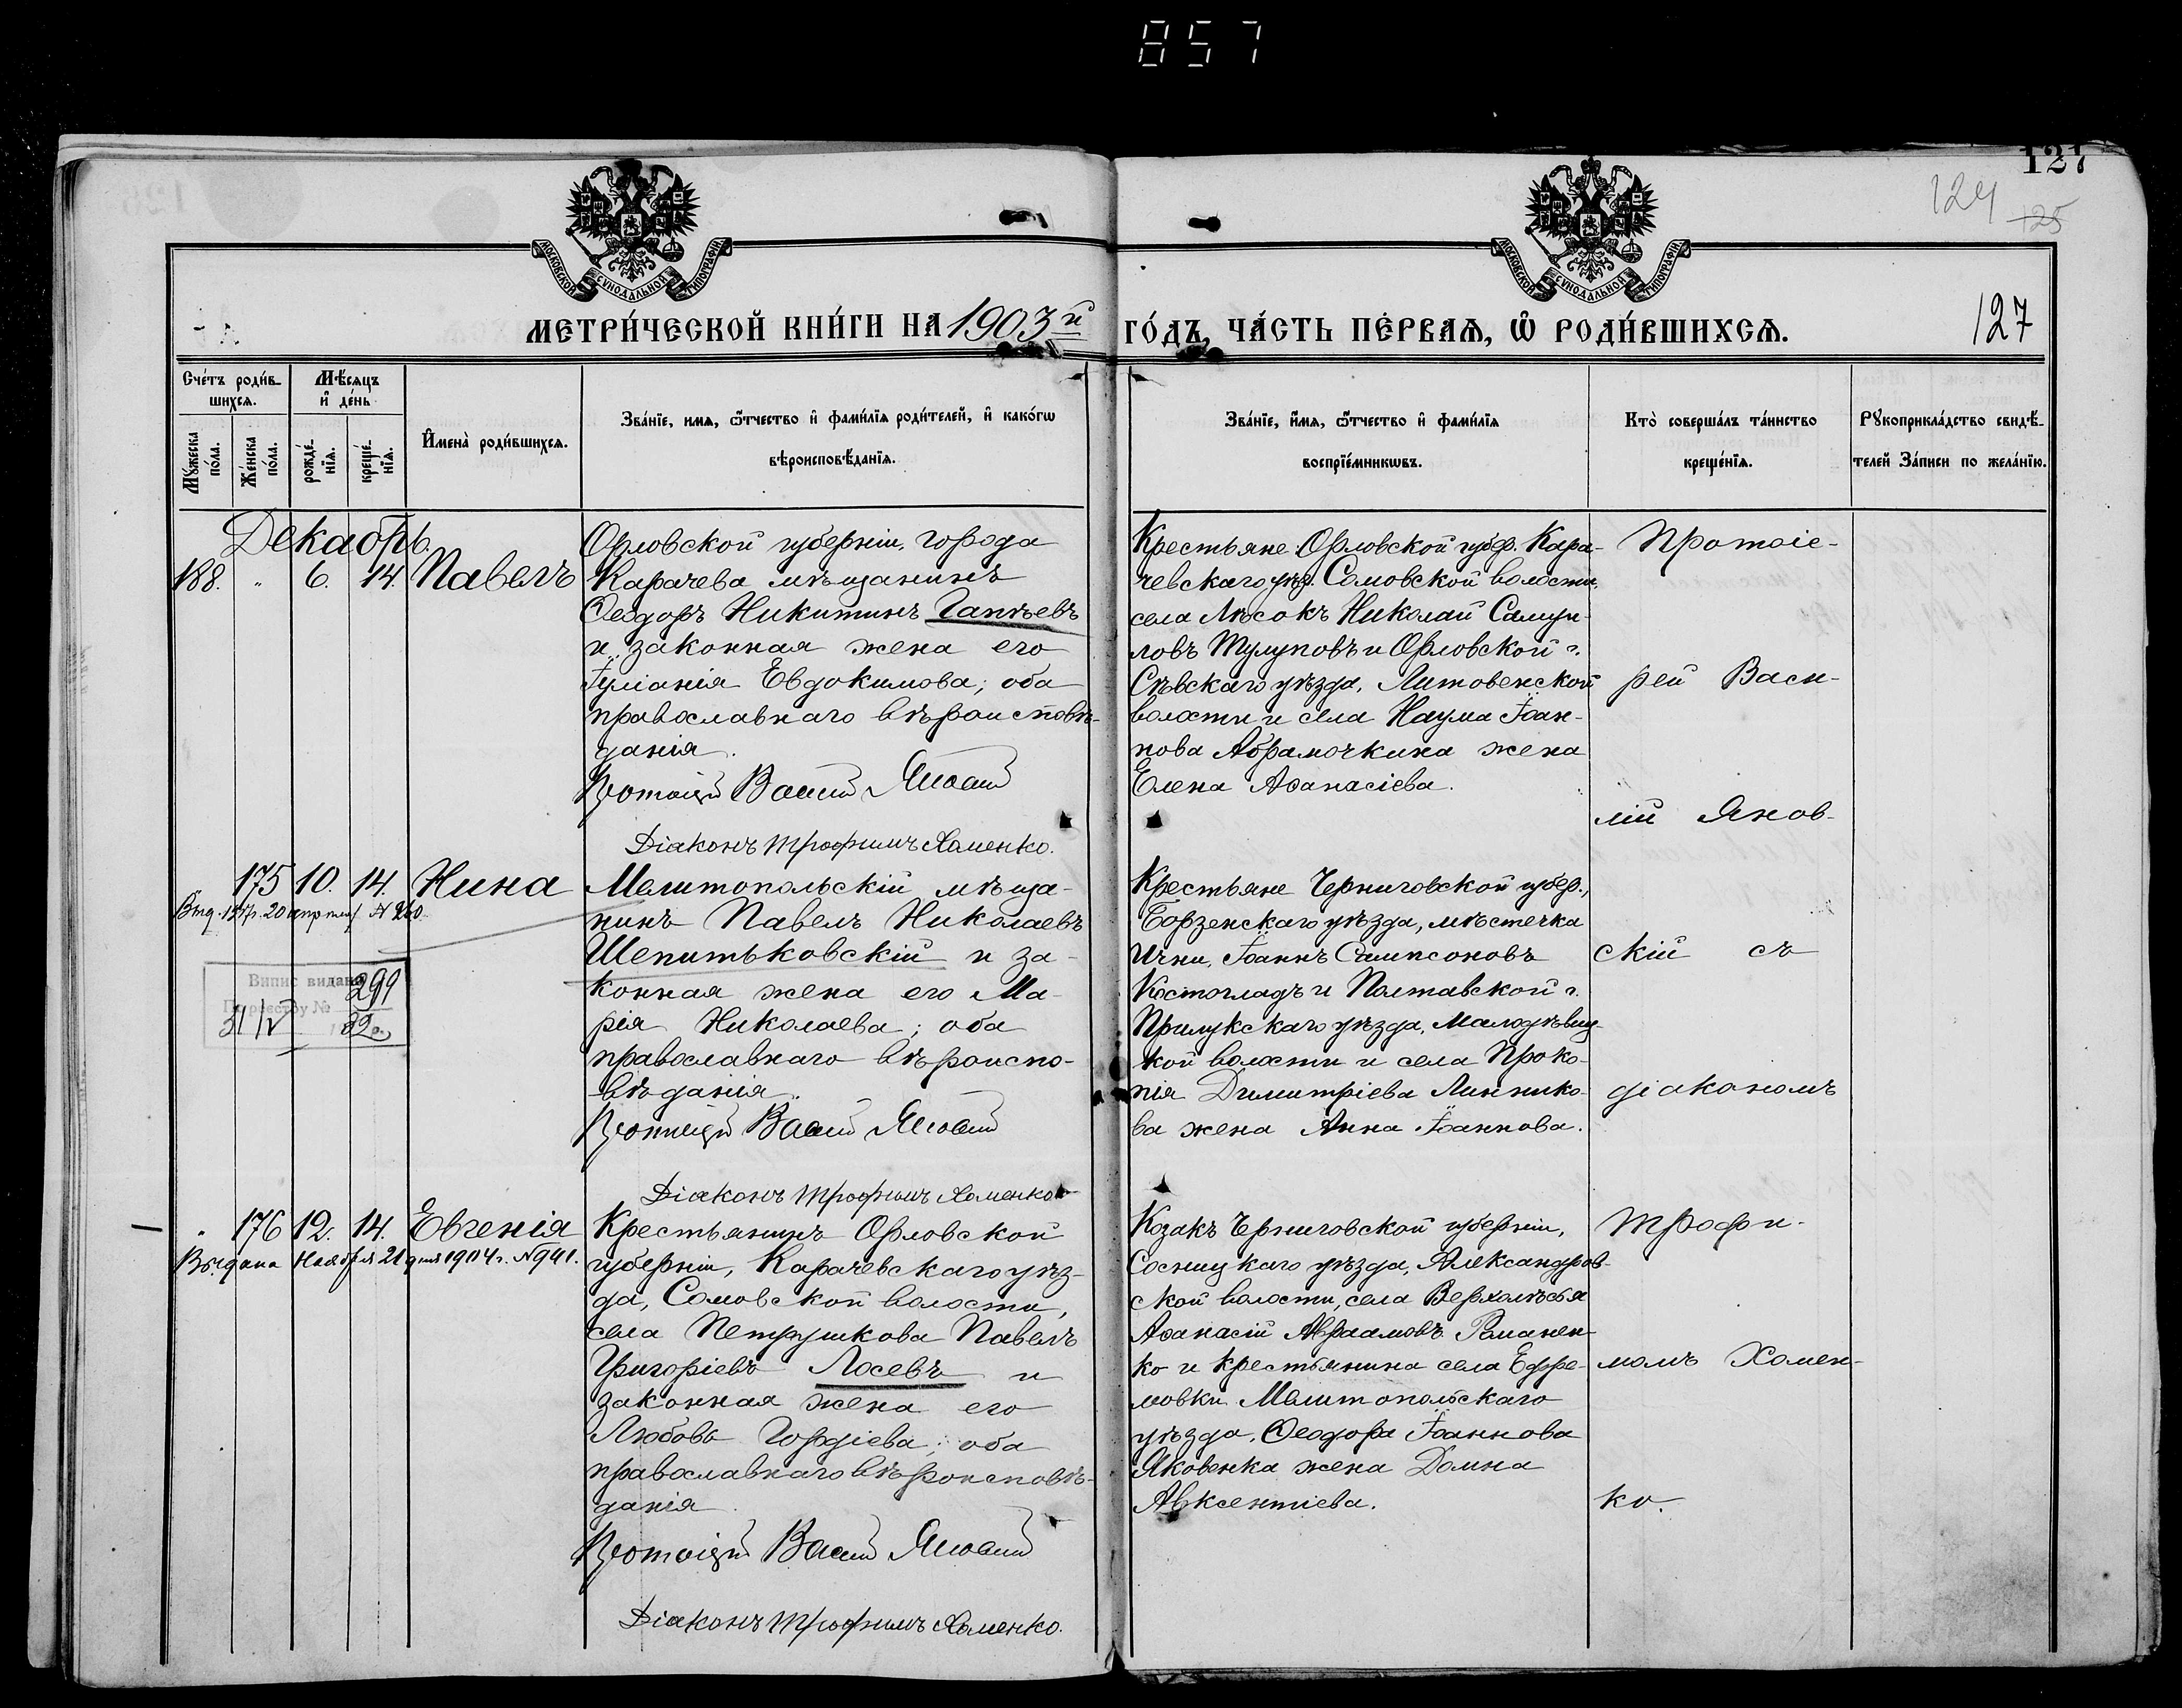 857
127
124 125
МОСКОВСКОЙ СѴНОДАЛЬНОЙ ТИПОГРАФІИ
МОСКОВСКОЙ СѴНОДАЛЬНОЙ ТИПОГРАФІИ
МЕТРИ́ЧЕСКОЙ КНИ́ГИ НА 1903й ГО́ДЪ, ЧА́СТЬ ПЕ́РВАЯ, Ѽ РОДИ́ВШИХСЯ.
127
Сче́тъ роди́в-
шихся.
Мѣ́сяцъ
и҆ де́нь
Мꙋ́жеска
по́ла.
Же́нска
по́ла.
рожде́-
нїя.
креще́-
нїя.
И҆мена̀ роди́вшихся.
Зва́нїе, имя, ѻ҆́тчество и҆ фами́лїя роди́телей, и҆ како́гѡ
вѣроисповѣ́данїя.
Зва́нїе, и҆́мя, ѻ҆́тчество и҆ фами́лїя
воспрїе́мникѡвъ.
Кто̀ соверша́лъ та́инство
креще́нїя.
Рꙋкоприкла́дство свидѣ́-
телей За́писи по жела́нїю.
Декабрь.
188. " 6. 14. Павелъ
Орловской губерніи, города
Карачева мѣщанинъ
Ѳеодоръ Никитинъ Гапѣевъ
и законная жена его
Іуліанія Евдокимова; оба
православнаго вѣроисповѣ-
данія.
Протоіерей Василій Яновскій
Діаконъ Трофимъ Хоменко.
Крестьяне: Орловской губер. Кара-
чевскаго уѣз. Сомовской волости,
села Лѣсокъ Николай Самуи-
ловъ Тулуповъ и Орловской г.
Сѣвскаго уѣзда, Литовенской
волости и села Наума Іоан-
нова Абрамочкина жена
Елена Аѳанасіева.
175 10. 14. Нина
Выд. 20 апрѣля № 260.
Випис видано
По реєстру № 299
31 IV 32 р.
Мелитопольскій мѣща-
нинъ Павелъ Николаевъ
Шепитьковскій и за-
конная жена его Ма-
рія Николаева; оба
православнаго вѣроиспо-
вѣданія.
Протоіерей Василій Яновскій
Діаконъ Трофимъ Хоменко
Крестьяне Черниговской губер.,
Борзенскаго уѣзда, мѣстечка
Ични, Іоаннъ Сампсоновъ
Костогладъ и Полтавской г.
Прилукскаго уѣзда, Малодѣвиц-
кой волости и села Проко-
пія Димитріева Линнико-
ва жена Анна Іоаннова.
" 176 12. 14. Евгенія
Выдана Ноября 21 дня 1904 г. № 941.
Крестьянинъ Орловской
губерніи, Карачевскаго уѣз-
да, Сомовской волости,
села Петрушкова Павелъ
Григоріевъ Лосевъ и
законная жена его
Любовь Гордіева; оба
православнаго вѣроисповѣ-
данія.
Протоіерей Василій Яновскій
Діаконъ Трофимъ Хоменко.
Козакъ Черниговской губерніи,
Сосницкаго уѣзда, Александров-
ской волости, села Верхолѣсья
Аѳанасій Авраамовъ Романен-
ко и крестьянина села Ефре-
мовки Мелитопольскаго
уѣзда, Ѳеодора Іоаннова
Яковенка жена Домна
Авксентіева.
Протоіе-
рей Васи-
лій Янов-
скій съ
діакономъ
Трофи-
момъ Хомен-
ко.